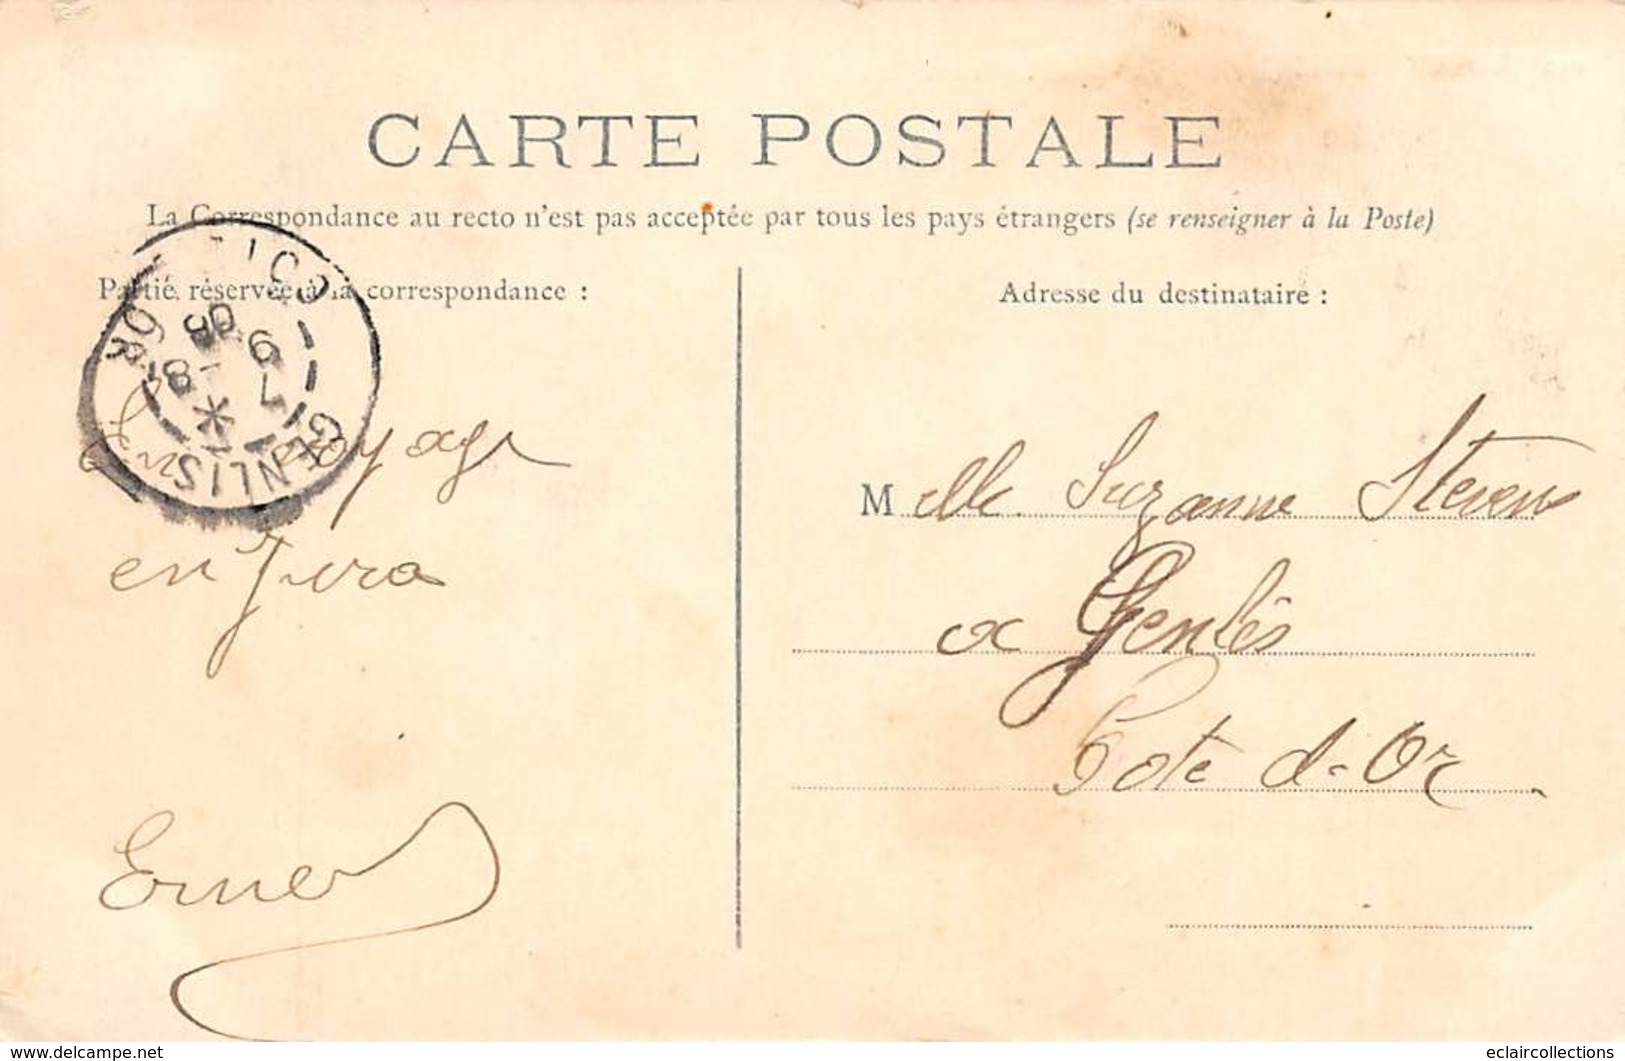 CARTE POSTALE
La Correspondance au recto n'est pas acceptée par tous les pays étrangers (se renseigner à la Poste)
Partie réservée à la correspondance :
Adresse du destinataire :
GENLIS
COTE D'OR
7 - 8
9
06
En voyage
en Jura
Ernest
Melle Suzanne Stevens
a Genlis
Cote d-Or
www.delcampe.net
eclaircollections